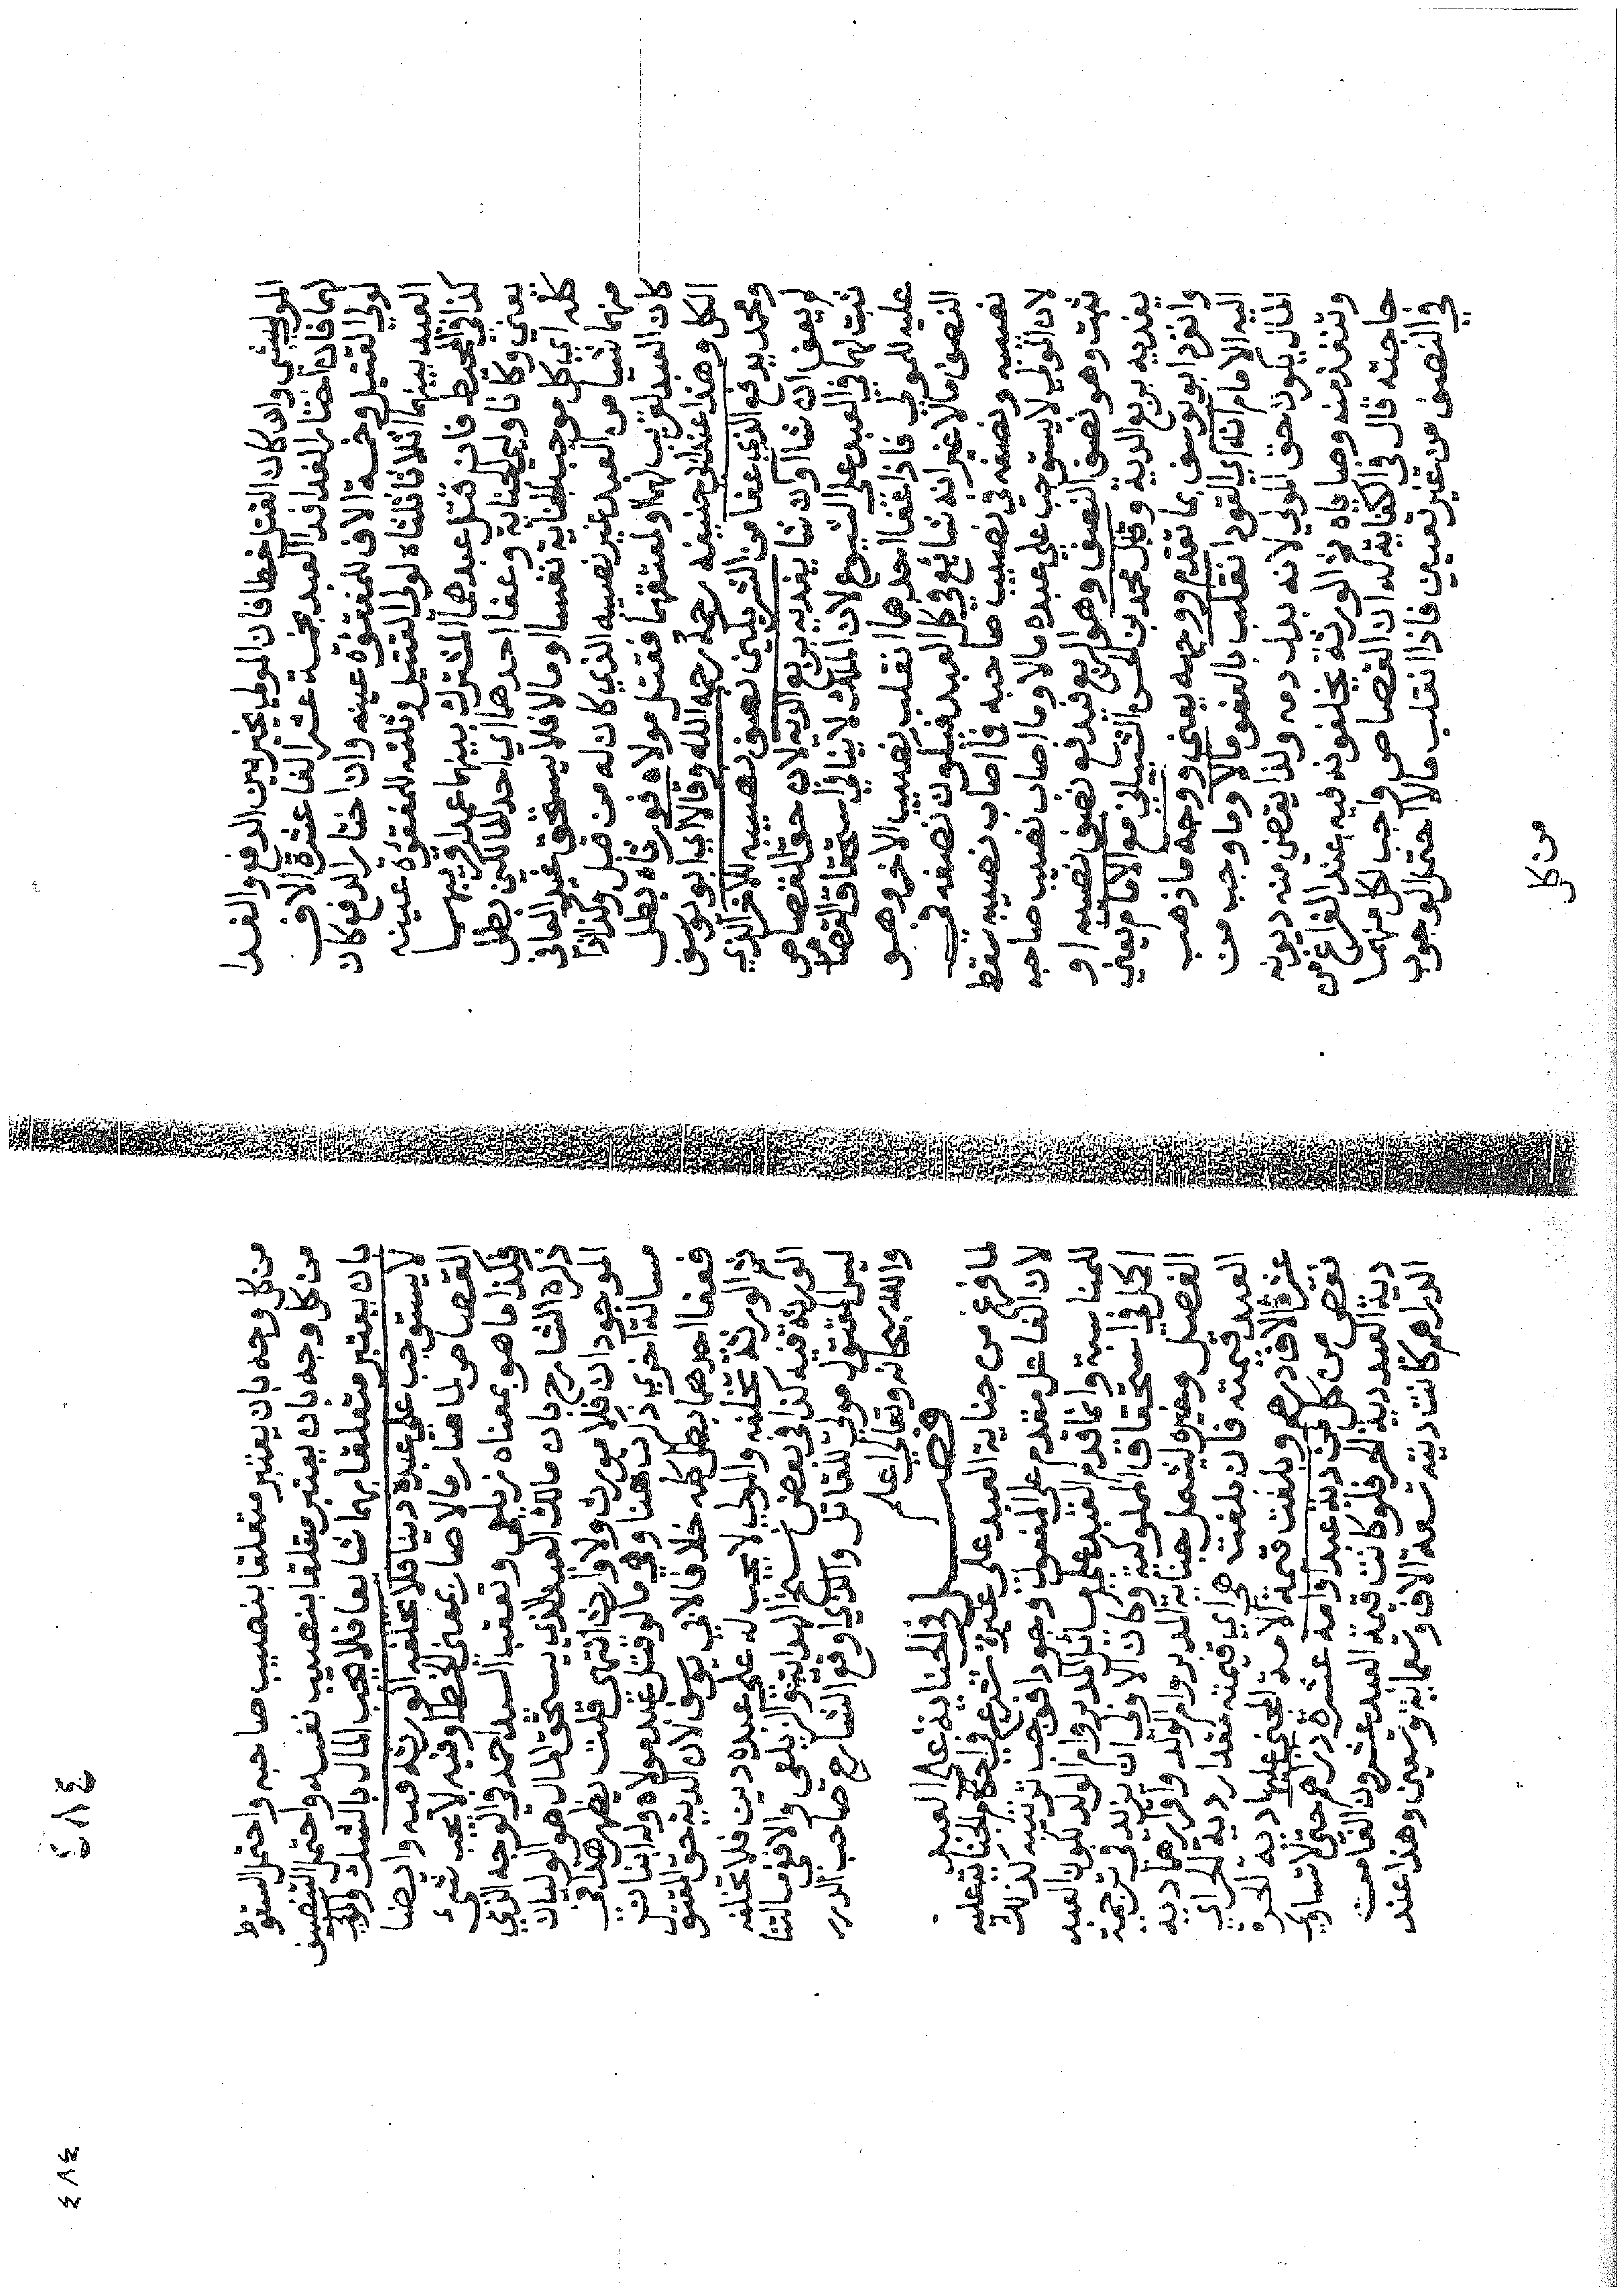 المولي لشي وان كان القتل خطا فان المولي يخير بين الدفع والفدا
لهما فان اختار الفدا فدا العبد بخمسة عشر الفا عشرة الاف
لولي القتيل وخمسة الاف للمفقوءة عينه وان اختار الدفع كان
العبد بينهما اثلاثا ثلثاه لولي القتيل وثلثه للمفقوءة عينه
كذا في المحيط فان قتل عبدهما المشترك بينهما عمدا قريبهما
يعني وكانا وليي الجناية وعفا احدهما اي احد المالكين بطل
كله اي كل موجب الجناية نفسا او مالا فلا يستحق غير العافي
منهما شيا من العبد غير نصيبه الذي كان له من قبل وكذا اذا
كان العبد لقريب لهما او لمعتقهما فقتل مولاه فورثاه بطل
الكل وهذا عند ابي حنيفه رحمة رحمه الله وقالا اي ابو يوسف
ومحمد يدفع الذي عفا من الشريكين نصف نصيبه للاخر الذي
لم يعف ان شا او ان شا يفديه بربع الدية لان حق القصاص
ثبت لهما في العبد على الشيوع لان الملك لا ينافي استحقاق القصاص
عليه للمولي فاذا عفا احدهما انقلب نصيب الاخر وهو
النصف مالا غير انه شائع في كل العبد فيكون نصفه في
نصيبه ونصفه في نصيب صاحبه فما اصاب نصيبه سقط
لان المولي لا يستوجب على عبده مالا وما اصاب نصيب صاحبه
ثبت وهو نصف النصف وهو الربع فيدفع نصف نصيبه او
يفديه بربع الدية وقيل محمد بن الحسن الشيباني مع الامام يعني
وانفرد ابو يوسف بما تقدم ووجهه يعني ووجه ما ذهب
اليه الامام انه اي القود انقلب بالعفو مالا وما وجب من
المال يكون حق المولي لانه بدل دمه ولذا يقضي منه ديونه
وتنفذ منه وصاياه ثم الورثة يخلفونه فيه عند الفراغ من
حاجته قال في الكفاية له ان القصاص واجب لكل منهما
في النصف من غير تعيين فاذا انقلب مالا احتمل الوجوب
من كل
٤٨٤
٤٨٤
من كل وجه بان يعتبر متعلقا بنصيب صاحبه واحتمل السقوط
من كل وجه بان يعتبر متعلقا بنصيب نفسه واحتمل التنصيف
بان يعتبر متعلقا بهما شائعا فلا يجب المال بالشك والمولي
لا يستوجب على عبده دينا فلا يخلفه الورثة فيه وايضا
القصاص لما صار مالا صار بمعني الخطا وفيه لا يجب شيء
فكذا ما هو بمعناه زيلعي وتعقب السيد احمد في الوجه الذي
ذكره الشارح بان مالك العبد الذي يستحق المال هو الوليان
الموجودان فلا مورث ولا وارث انتهي قلت يظهر هذا في
مسالة اخري ذكرت هنا وهي ما لو قتل عبد مولاه وله ابنان
فعفا احدهما بطل كله خلافا لابي يوسف لان الدية حق القتيل
ثم الورثة تخلفه والمولي لا يجب له على عبده دين فلا تخلفه
الورثة فيه كذا في بعض نسخ الهداية والزيلعي والا ففي مسالتنا
ليس المقتول مولي للقاتل والذي اوقع الشارح صاحب الدرر
والله سبحانه وتعالي اعلم
فصل في الجناية على العبد
لما فرغ من جناية العبد على غيره شرع في احكام الجناية عليه
لان الفاعل مقدم على المفعول وجودا فوجب ترتيبه لذلك
للمناسبة وانما قدم العبد على مسائل المدبر وام الولد لكون العبد
اكمل في استحقاق المملوكية وكان الاولى ان يزيد في ترجمة
الفصل وغيره ليشمل جناية المدبر وام الولد واقرارهما دية
العبد قيمته فان بلغت هي اي قيمته مقدار دية الحر اي
عشرة الاف درهم وبلغت قيمة الامة المجني عليها دية الحرة
نقص من كل من دية عبد او امة عشرة دراهم حتي لا تساوي
دية العبد دية الحر فلو كانت قيمة العبد عشرون الفا من
الدراهم كانت ديته تسعة الاف وتسعماية وتسعين وهذا عند